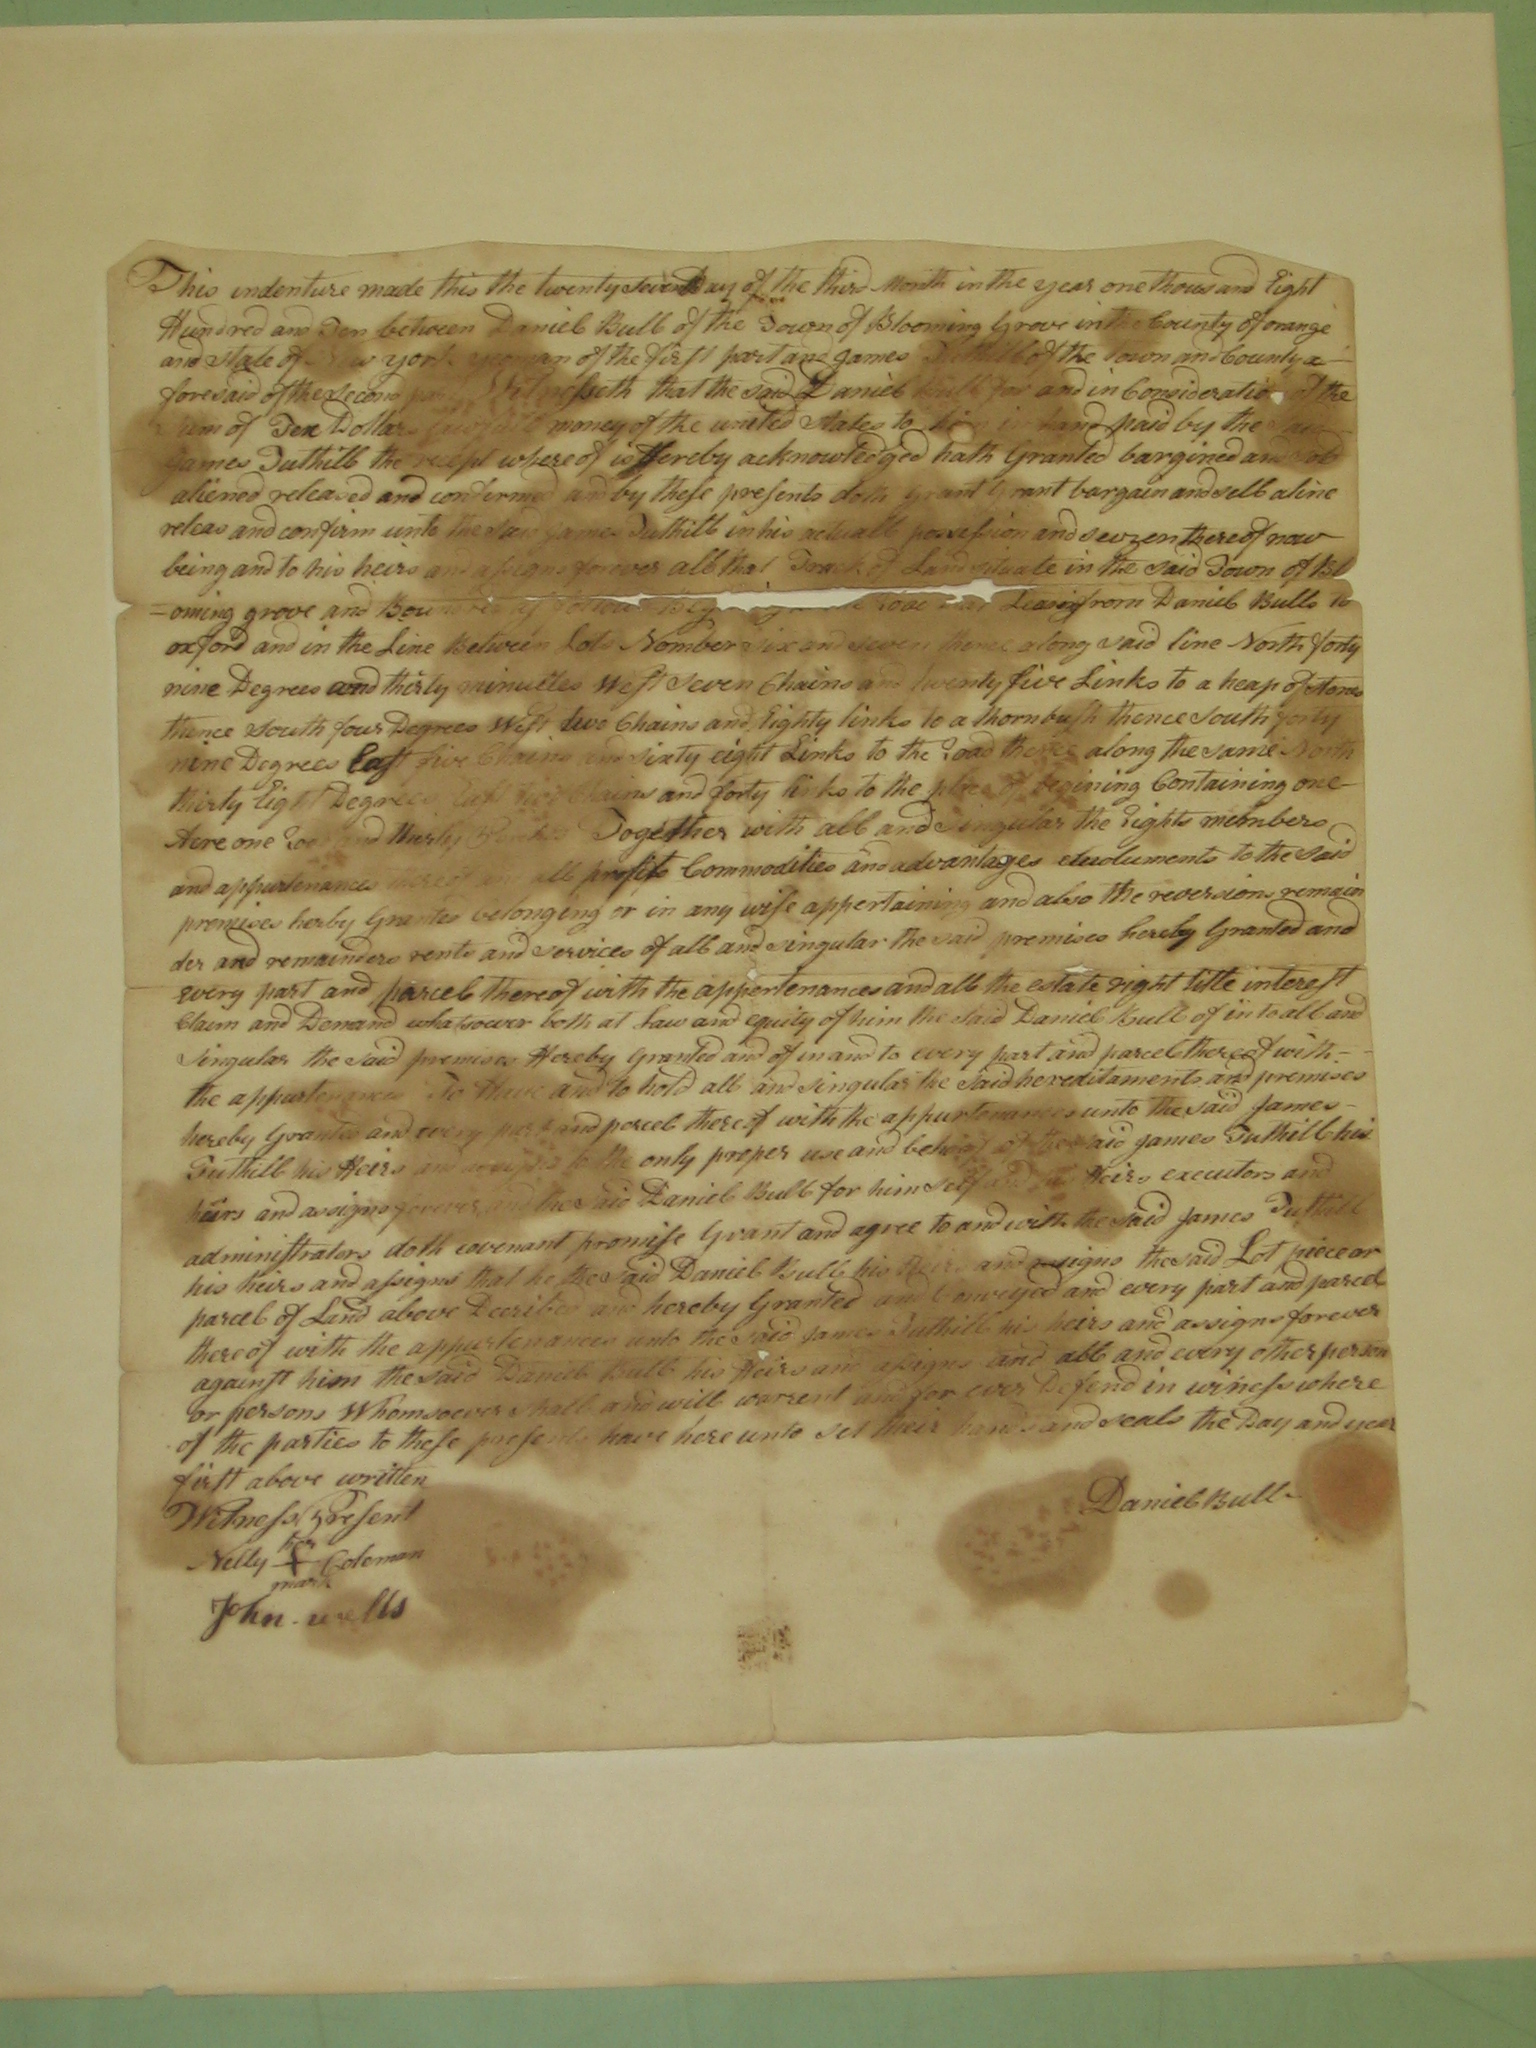 This indenture made this the twenty seventh Day of the third Month in the year one thousand Eight
Hundred and Ten between Daniel Bull of the Town of Blooming Grove in the County of orange
and state of New york yeoman of the first part and James Tuthill of the town and County a-
foresaid of the second part Witnesseth that the said Daniel Bull for and in Consideration of the
sum of Ten Dollars lawfull money of the united states to him in hand paid by the said
James Tuthill the recept whereof is Hereby acknowledged hath Granted bargined and sold
aliened released and confirmed and by these presents doth grant Grant bargain and sell aline
releas and confirm unto the said James Tuthill in his actuall possession and sewzen thereof now
being and to his heirs and assigns forever all that Track of Land situate in the said Town of Bl
=oming grove and Bounded as follows Leading from Daniel Bulls to
oxford and in the Line Between Lots Nomber six and seven thence along said line North forty
nine Degrees and thirty minuetes West seven Chains and twenty five Links to a heap of stones
thence south four Degrees West two Chains and Eighty links to a thornbush thence south forty
nine Degrees East five Chains and sixty eight Links to the Road thence along the same North
thirty Eight Degrees East two Chains and forty links to the place of begining Containing one
Acre one Rood and thirty Together with all and singular the Rights members
and appurtenances thereof and all profits Commodities and advantages emoluments to the said
premises herby Granted belonging or in any wise appertaining and also the reversions remain
der and remainders rents and services of all and singular the said premises hereby Granted and
every part and parcel thereof with the appertenances and all the estate right title interest
Claim and Demand whatsoever both at Law and equity of him the said Daniel Bull of in to all and
singular the said premises Hereby Granted and of in and to every part and parcel thereof with-
the appurtenances To Have and to hold all and singular the said hereditaments and premises
hereby Granted and every part and percel thereof with the appurtenances unto the said James-
Tuthill his Heirs and assigns to the only proper use and behoof of the said James Tuthill his
heirs and assigns forever and the said Daniel Bull for him self and his Heirs executors and
administrators doth covenant promise Grant and agree to and with the said James Tuthill
his heirs and assigns that he the said Daniel Bull his Heirs and assigns the said Lot piece or
parcel of Land above Decribed and hereby Granted and Conveyed and every part and parcel
thereof with the appurtenances unto the said James Tuthill his heirs and assigns forever
against him the said Daniel Bull his Heirs and assigns and all and every other person
or persons Whomsoever shall and will warrent and for ever Defend in winess where
of the parties to these presents have here unto set their hands and seals the Day and year
first above written
Witness Present
Daniel Bull
her
Nelly + Coleman
mark
John wells